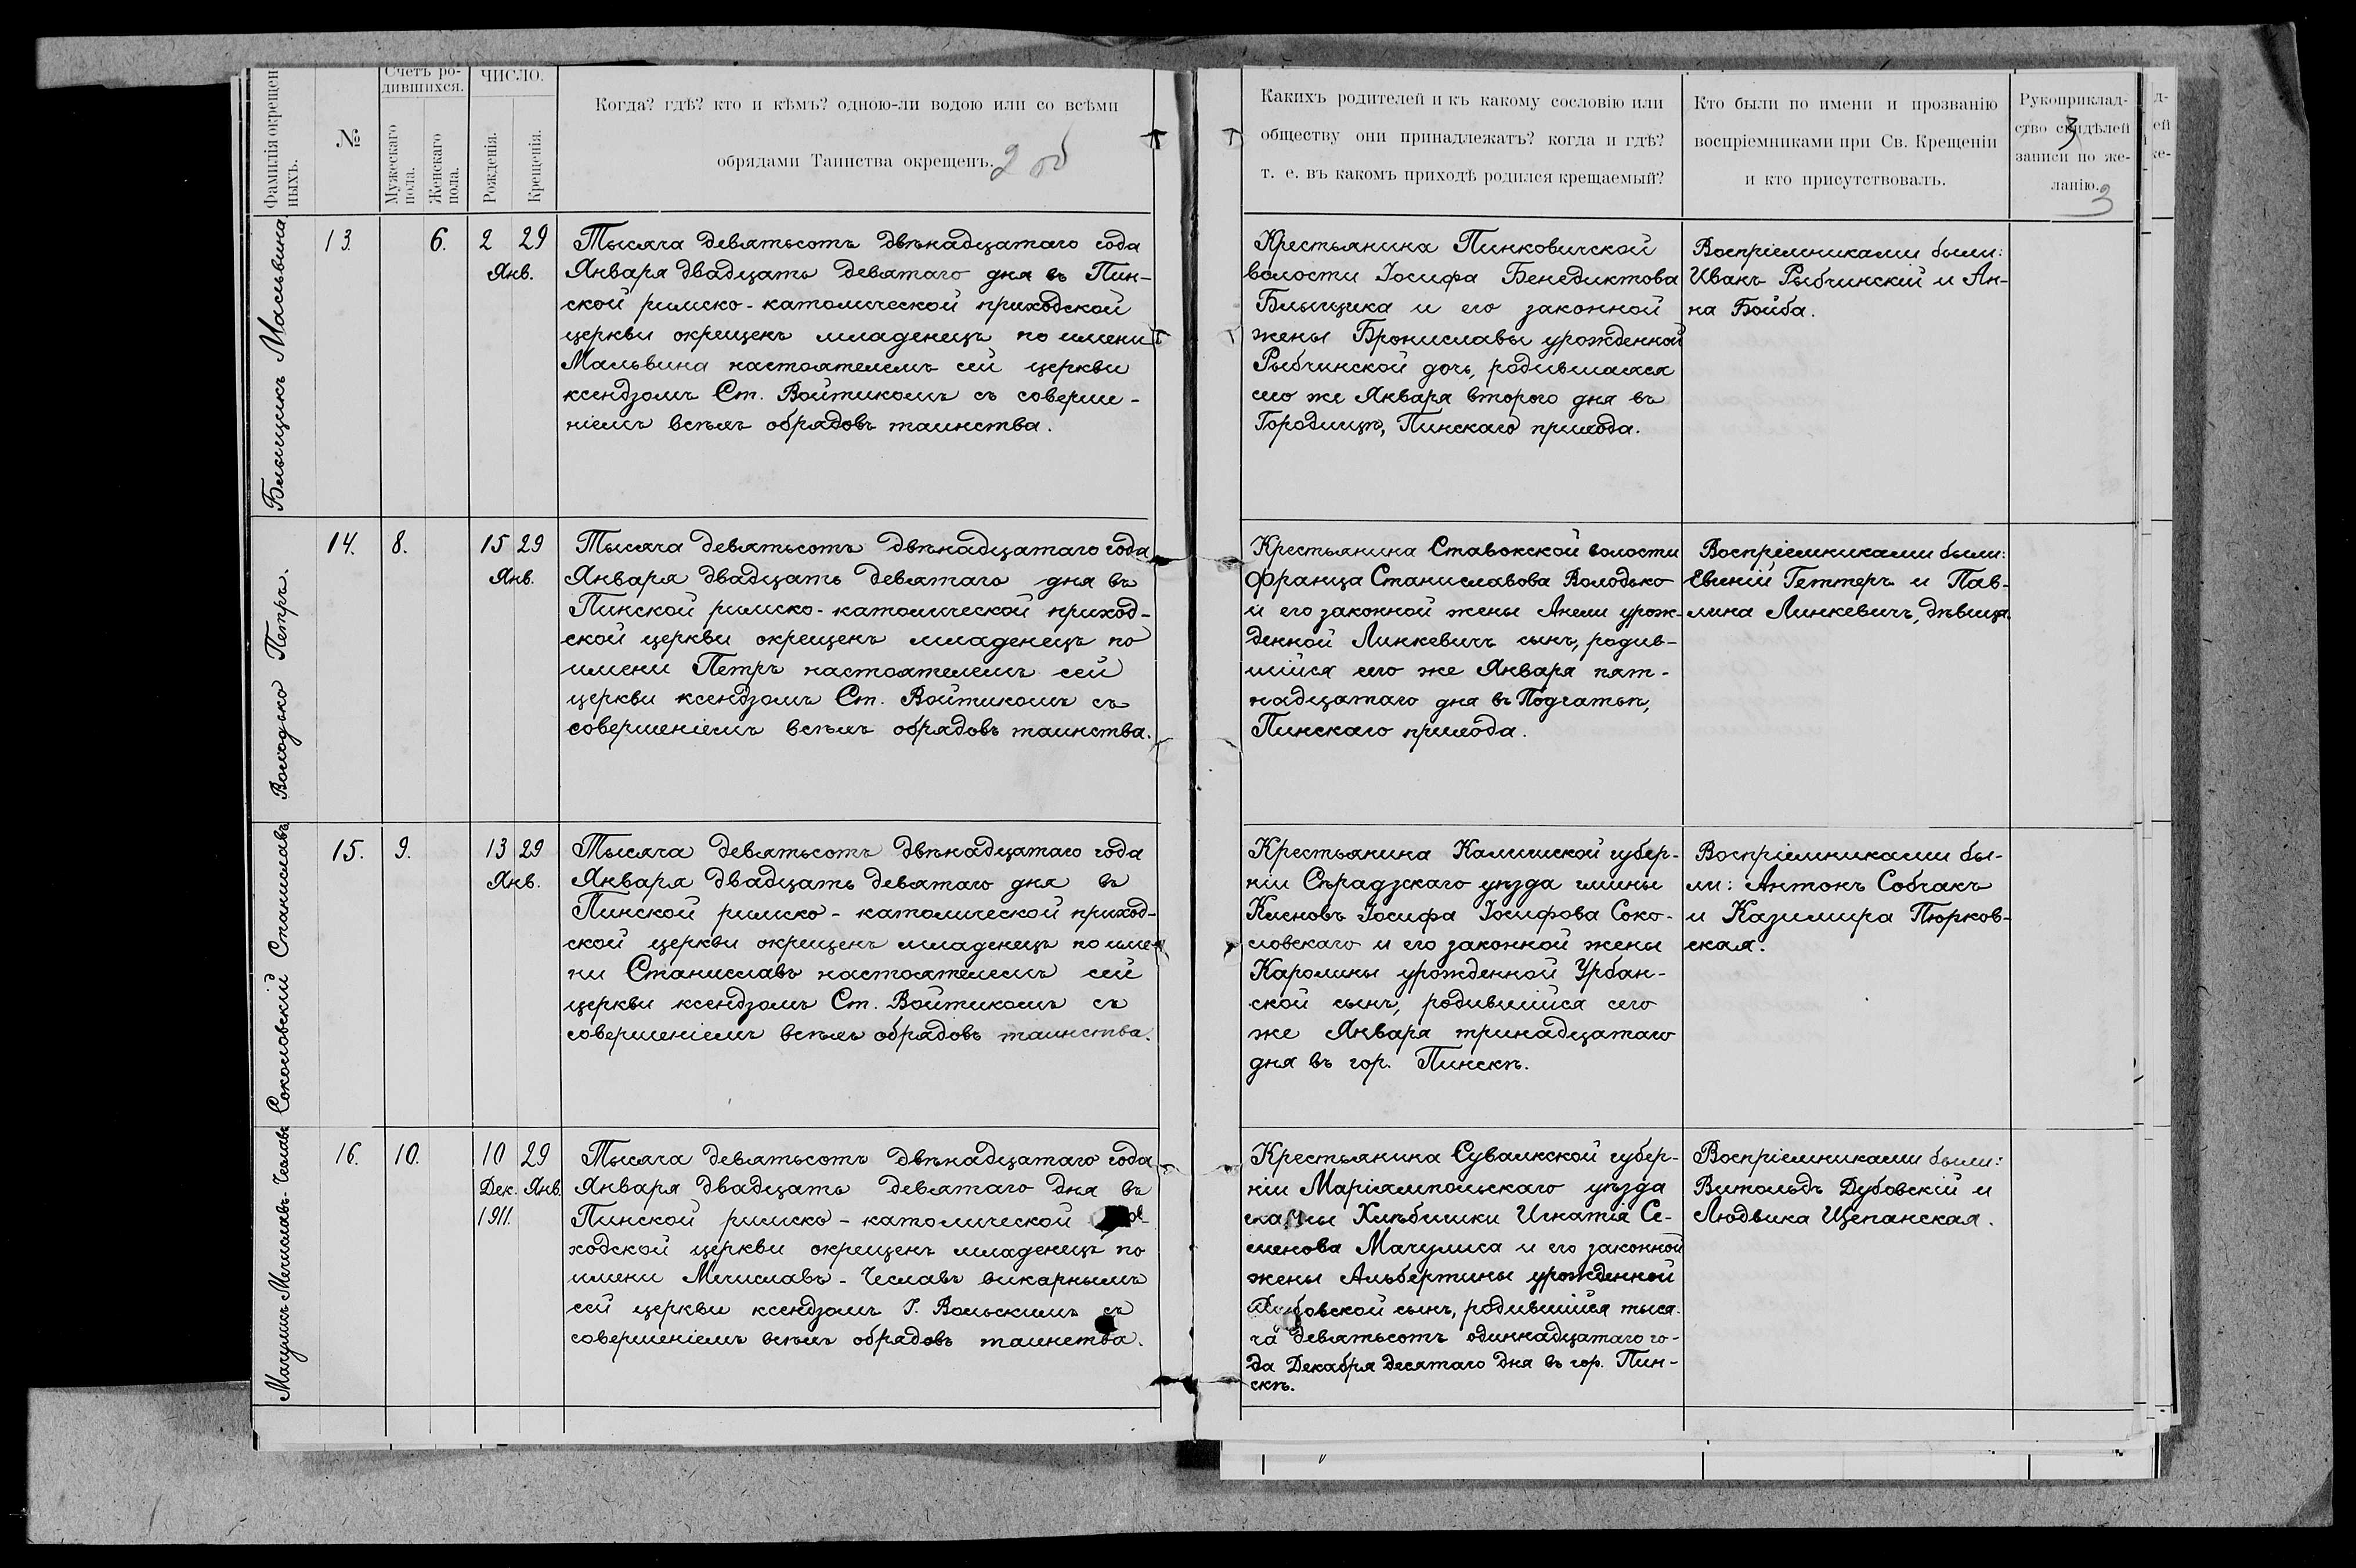 Фамилія окрещен
ныхъ.
№
Счетъ ро-
дившихся.
Мужескаго
пола.
Женскаго
пола.
ЧИСЛО.
Рожденія.
Крещенія.
Когда? гдѣ? кто и кѣмъ? одною-ли водою или со всѣми
обрядами Таинства окрещенъ.
2 об
Какихъ родителей и къ какому сословію или
обществу они принадлежатъ? когда и гдѣ?
т. е. въ какомъ приходѣ родился крещаемый?
Кто были по имени и прозванію
воспріемниками при Св. Крещеніи
и кто присутствовалъ.
Рукоприклад-
ство свидѣлей
записи по же-
ланію.
3
3
Бѣльщикъ Мальвина
13.
6.
2 29
Янв.
Тысяча девятьсотъ двѣнадцатаго года
Января двадцать девятаго дня въ Пин-
ской римско-католической приходской
церкви окрещенъ младенецъ по имени
Мальвина настоятелемъ сей церкви
ксендзомъ Ст. Войтикомъ съ соверше-
ніемъ всѣхъ обрядовъ таинства.
Крестьянина Пинковичской
волости Іосифа Бенедиктова
Бѣльщика и его законной
жены Брониславы урожденной
Рыбчинской дочь, родившаяся
сего же Января второго дня въ
Городищѣ, Пинскаго прихода.
Воспріемниками были:
Иванъ Рыбчинскій и Ан-
на Бойба.
Володько Петръ.
14.
8.
15 29
Янв.
Тысяча девятьсотъ двѣнадцатаго года
Января двадцать девятаго дня въ
Пинской римско-католической приход-
ской церкви окрещенъ младенецъ по
имени Петръ настоятелемъ сей
церкви ксендзомъ Ст. Войтикомъ съ
совершеніемъ всѣхъ обрядовъ таинства.
Крестьянина Ставокской волости
Франца Станиславова Володько
и его законной жены Анели урож-
денной Линкевичъ сынъ, родив-
шійся сего же Января пят-
надцатаго дня въ Подгатьѣ,
Пинскаго прихода.
Воспріемниками были:
Евгеній Геттеръ и Пав-
лина Линкевичъ, дѣвица.
Соколовскій Станиславъ
15.
9.
13 29
Янв.
Тысяча девятьсотъ двѣнадцатаго года
Января двадцать девятаго дня въ
Пинской римско-католической приход-
ской церкви окрещенъ младенецъ по име-
ни Станиславъ настоятелемъ сей
церкви ксендзомъ Ст. Войтикомъ съ
совершеніемъ всѣхъ обрядовъ таинства.
Крестьянина Калишской губер-
ніи Сѣрадзскаго уѣзда гмины
Клоновъ Іосифа Іосифова Соко-
ловскаго и его законной жены
Каролины урожденной Урбан-
ской сынъ, родившійся сего
же Января тринадцатаго
дня въ гор. Пинскѣ.
Воспріемниками бы-
ли: Антонъ Собчакъ
и Казимира Пюрков-
ская.
Мачулисъ Мечиславъ-Чеславъ
16.
10.
10 29
Дек. Янв.
1911.
Тысяча девятьсотъ двѣнадцатаго года
Января двадцать девятаго дня въ
Пинской римско-католической
ходской церкви окрещенъ младенецъ по
имени Мечиславъ-Чеславъ викарнымъ
сей церкви ксендзомъ Г. Вольскимъ съ
совершеніемъ всѣхъ обрядовъ таинства.
Крестьянина Сувалкской губер-
ніи Маріямпольскаго уѣзда
гмины Хлѣбишки Игнатія Се-
менова Мачулиса и его законной
жены Альбертины урожденной
Дубовской сынъ, родившійся тыся-
ча девятьсотъ одиннадцатаго го-
да Декабря десятаго дня въ гор. Пин-
скѣ.
Воспріемниками были:
Витольдъ Дубовскій и
Людвика Щепанская.